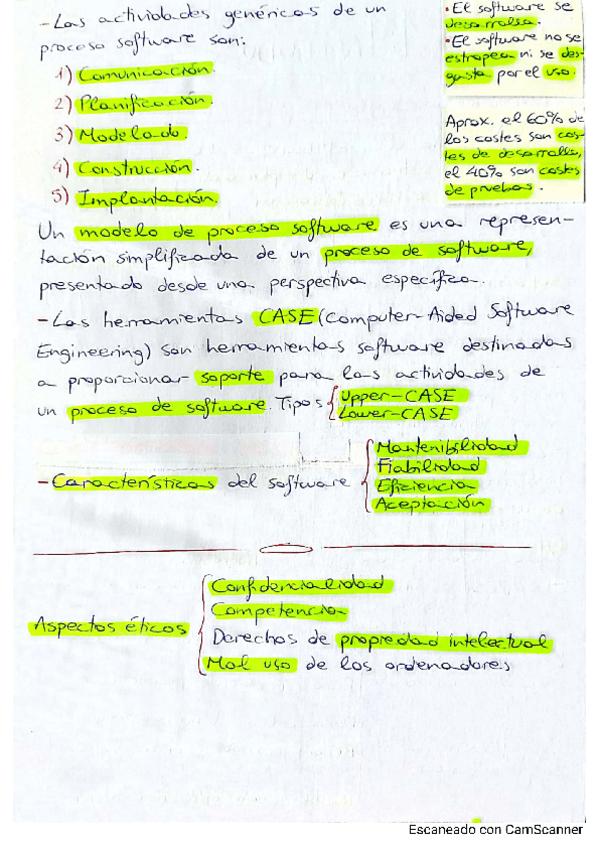 - Las actividades genéricas de un
proceso software son:
1) Comunicación.
2) Planificación.
3) Modelado.
4) Construcción.
5) Implantación.
• El software se
desarrolla.
• El software no se
estropea ni se des-
gasta por el uso.
Aprox. el 60% de
los costes son cos-
tes de desarrollo,
el 40% son costes
de pruebas.
Un modelo de proceso software es una represen-
tación simplificada de un proceso de software,
presentado desde una perspectiva específica.
- Las herramientas CASE (Computer-Aided Software
Engineering) son herramientas software destinadas
a proporcionar soporte para las actividades de
un proceso de software. Tipos { Upper-CASE
Lower-CASE
- Características del software { Mantenibilidad
Fiabilidad
Eficiencia
Aceptación
Aspectos éticos { Confidencialidad
Competencia
Derechos de propiedad intelectual
Mal uso de los ordenadores
Escaneado con CamScanner